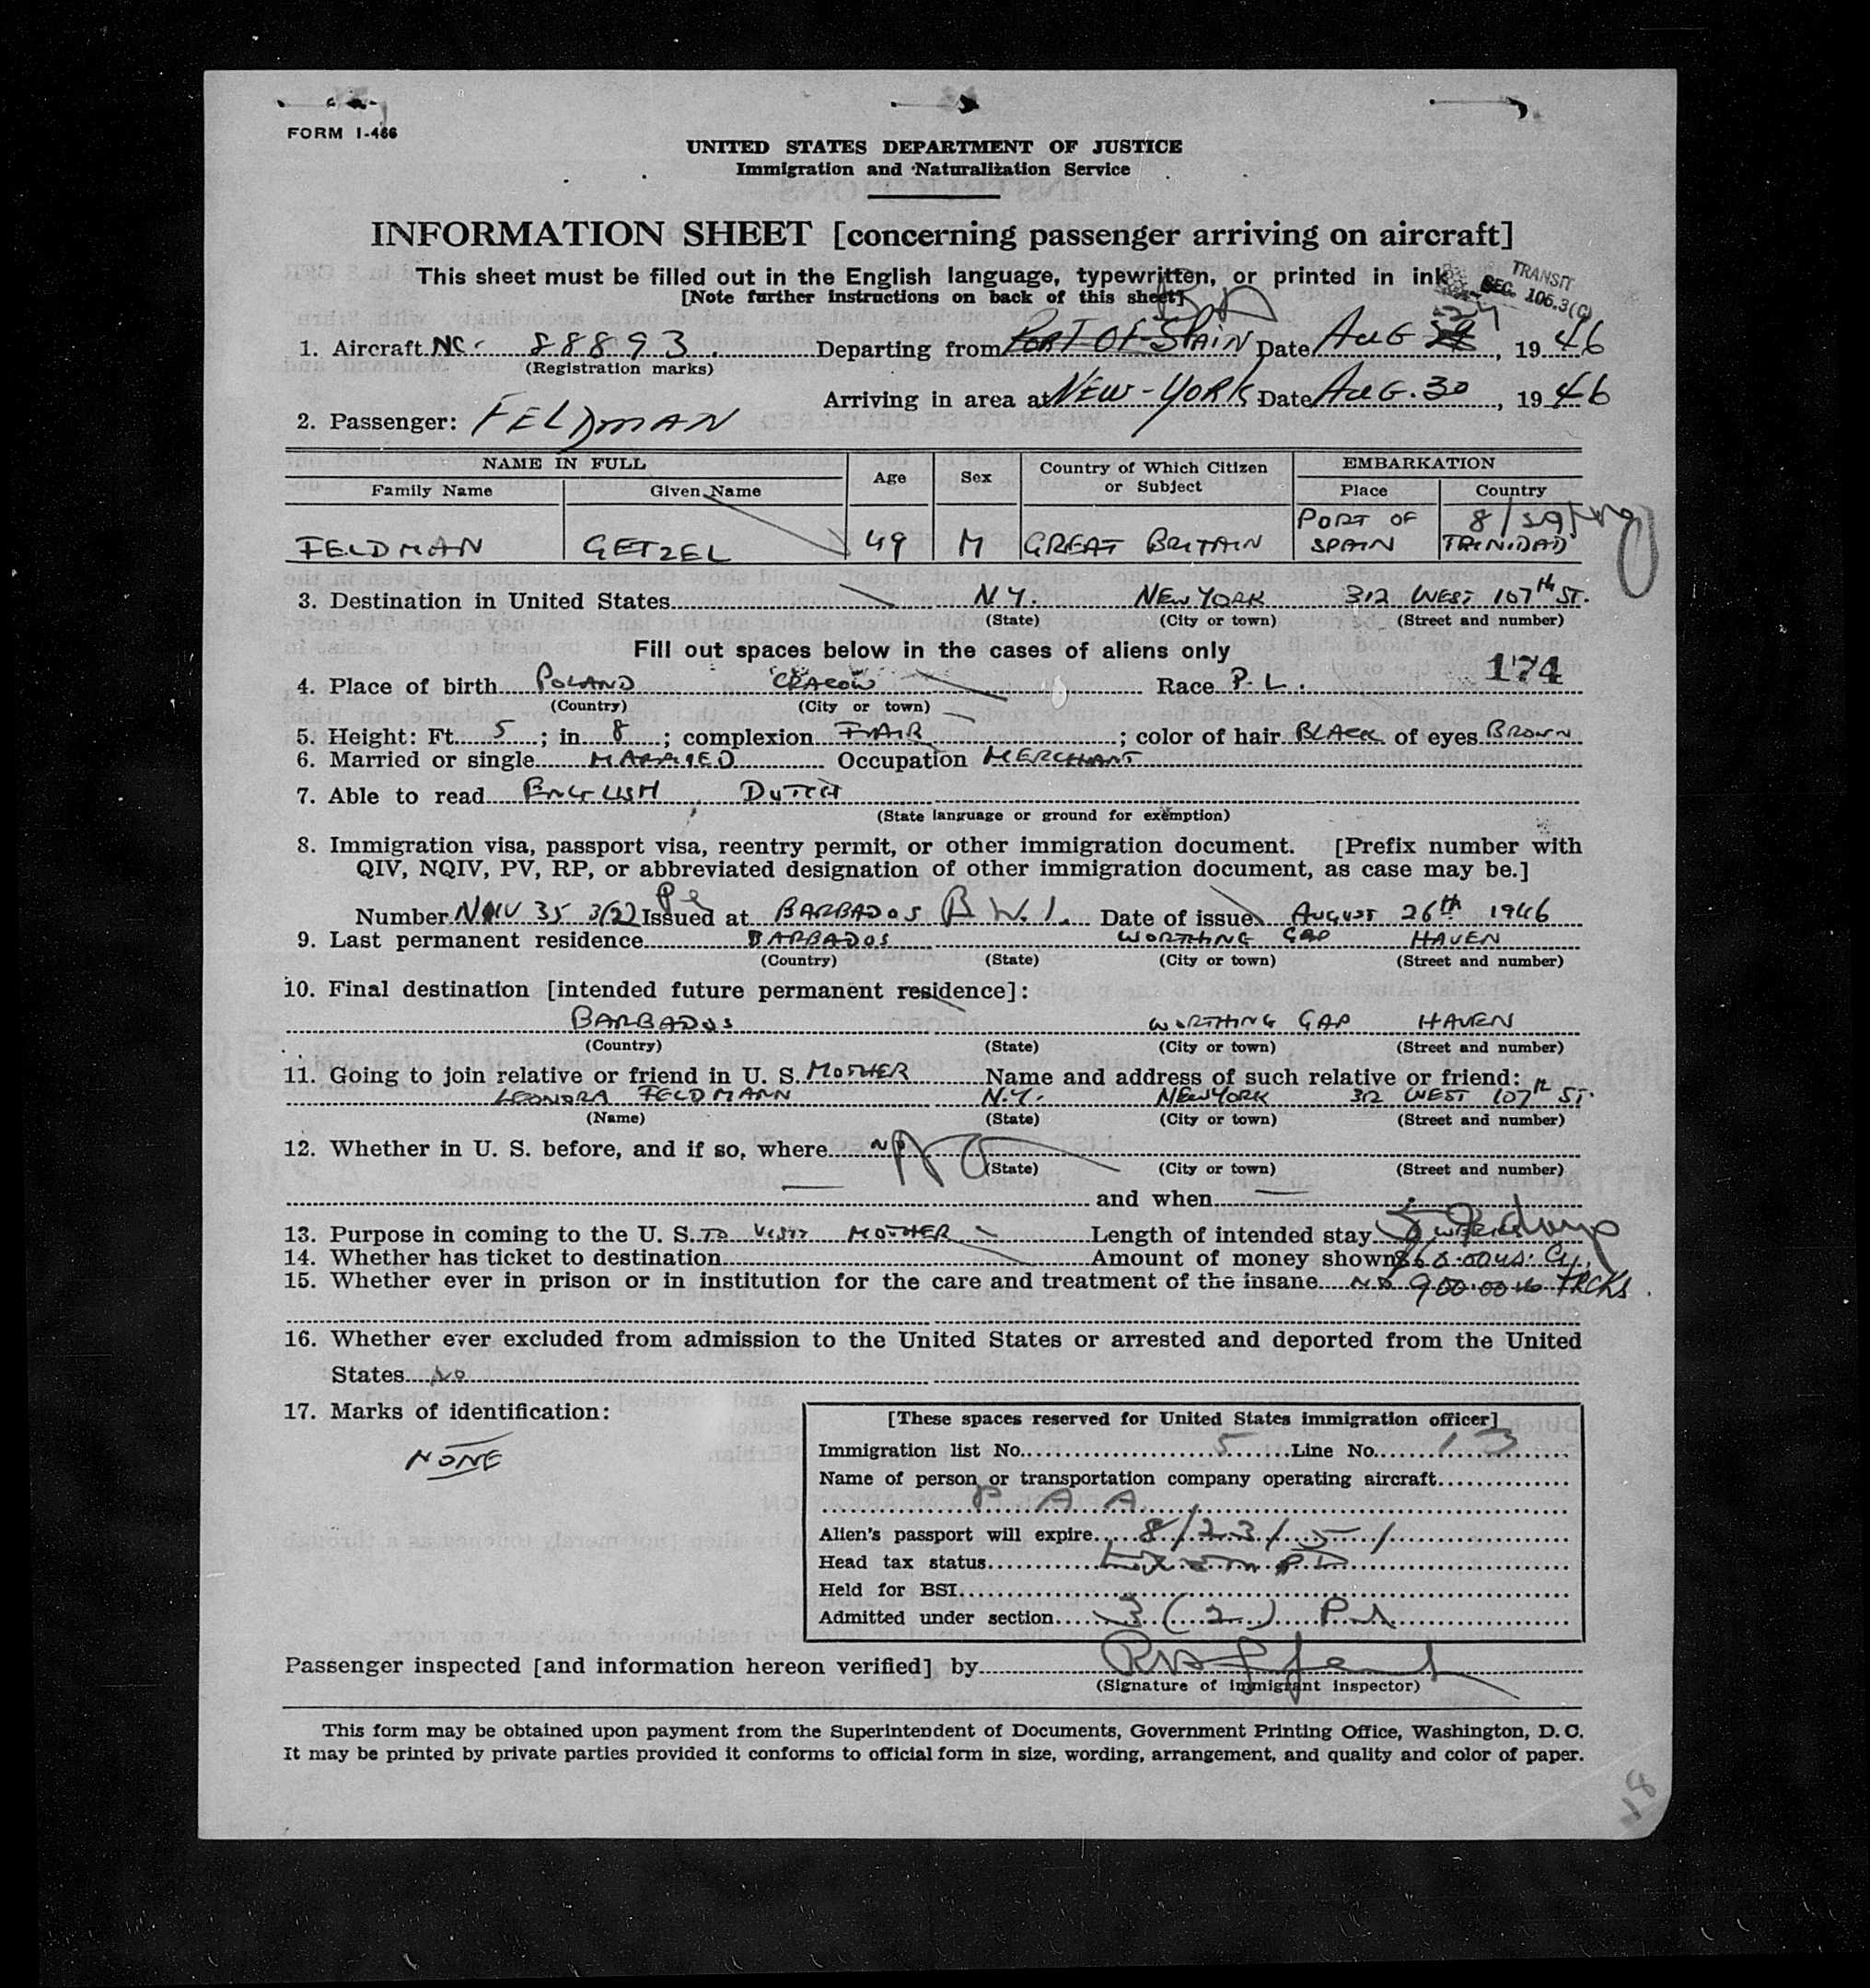 FORM I-466
UNITED STATES DEPARTMENT OF JUSTICE
Immigration and Naturalization Service
INFORMATION SHEET [concerning passenger arriving on aircraft]
This sheet must be filled out in the English language, typewritten, or printed in ink
[Note further instructions on back of this sheet]
TRANSIT
SEC. 106.3(C)
1. Aircraft NC- 88893. Departing from PORT OF SPAIN Date AUG 29, 1946
(Registration marks)
Arriving in area at NEW-YORK Date AUG. 30, 1946
2. Passenger: FELDMAN
NAME IN FULL Age Sex Country of Which Citizen or Subject EMBARKATION
Family Name Given Name Place Country
FELDMAN GETZEL 49 M GREAT BRITAIN PORT OF SPAIN TRINIDAD
3. Destination in United States N.Y. NEW YORK 312 WEST 107th ST.
(State) (City or town) (Street and number)
Fill out spaces below in the cases of aliens only
174
4. Place of birth POLAND CRACOW Race P.L.
(Country) (City or town)
5. Height: Ft. 5; in 8; complexion FAIR; color of hair BLACK of eyes BROWN
6. Married or single MARRIED Occupation MERCHANT
7. Able to read ENGLISH, DUTCH
(State language or ground for exemption)
8. Immigration visa, passport visa, reentry permit, or other immigration document. [Prefix number with
QIV, NQIV, PV, RP, or abbreviated designation of other immigration document, as case may be.]
Number 35 3(2) Issued at BARBADOS B.W.I. Date of issue AUGUST 26th 1946
9. Last permanent residence BARBADOS WORTHING GAP HAVEN
(Country) (State) (City or town) (Street and number)
10. Final destination [intended future permanent residence]:
BARBADOS WORTHING GAP HAVEN
(Country) (State) (City or town) (Street and number)
11. Going to join relative or friend in U. S. MOTHER Name and address of such relative or friend:
LEONORA FELDMANN N.Y. NEW YORK 312 WEST 107th ST.
(Name) (State) (City or town) (Street and number)
12. Whether in U. S. before, and if so, where NO
(State) (City or town) (Street and number)
and when
13. Purpose in coming to the U. S. TO VISIT MOTHER Length of intended stay
14. Whether has ticket to destination Amount of money shown
15. Whether ever in prison or in institution for the care and treatment of the insane NO
16. Whether ever excluded from admission to the United States or arrested and deported from the United
States NO
17. Marks of identification:
NONE
[These spaces reserved for United States immigration officer]
Immigration list No. 5 Line No. 13
Name of person or transportation company operating aircraft
P A A
Alien's passport will expire 8/23/51
Head tax status
Held for BSI
Admitted under section 3(2)
Passenger inspected [and information hereon verified] by
(Signature of immigrant inspector)
This form may be obtained upon payment from the Superintendent of Documents, Government Printing Office, Washington, D. C.
It may be printed by private parties provided it conforms to official form in size, wording, arrangement, and quality and color of paper.